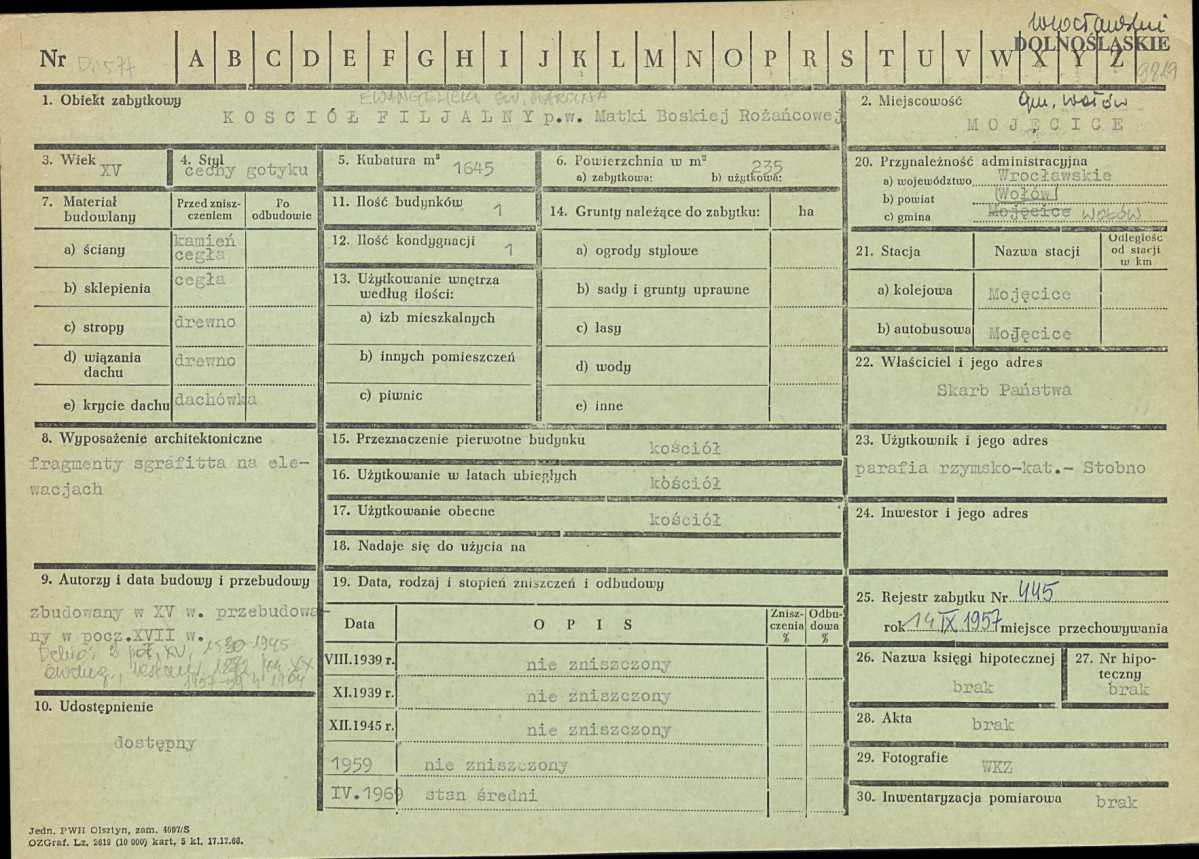 wrocławski
Nr D.577 A B C D E F G H I J K L M N O P R S T U V W X Y Z DOLNOŚLĄSKIE
9829
EWANGELICKI ŚW. MARCINA
1. Obiekt zabytkowy
KOSCIÓŁ FILJALNY p.w. Matki Boskiej Rożańcowej
2. Miejscowość gm. wołów
MOJĘCICE
3. Wiek XV
4. Styl cechy gotyku
5. Kubatura m³ 1645
6. Powierzchnia w m² 235
a) zabytkowa: b) użytkowa:
20. Przynależność administracyjna
a) województwo Wrocławskie
b) powiat Wołów
c) gmina Mojęcice WOŁÓW
7. Materiał budowlany
Przed zniszczeniem
Po odbudowie
a) ściany kamień cegła
b) sklepienia cegła
c) stropy drewno
d) wiązania dachu drewno
e) krycie dachu dachówka
11. Ilość budynków 1
12. Ilość kondygnacji 1
13. Użytkowanie wnętrza według ilości:
a) izb mieszkalnych
b) innych pomieszczeń
c) piwnic
14. Grunty należące do zabytku: ha
a) ogrody stylowe
b) sady i grunty uprawne
c) lasy
d) wody
e) inne
21. Stacja Nazwa stacji Odległość od stacji w km
a) kolejowa Mojęcice
b) autobusowa Mojęcice
22. Właściciel i jego adres
Skarb Państwa
8. Wyposażenie architektoniczne
fragmenty sgrafitta na ele-
wacjach
15. Przeznaczenie pierwotne budynku kościół
16. Użytkowanie w latach ubiegłych kościół
17. Użytkowanie obecne kościół
18. Nadaje się do użycia na
23. Użytkownik i jego adres
parafia rzymsko-kat.- Stobno
24. Inwestor i jego adres
9. Autorzy i data budowy i przebudowy
zbudowany w XV w. przebudowa-
ny w pocz.XVII w.
2 poł. XV, 1580 1945
1957-59, 1964
10. Udostępnienie
dostępny
19. Data, rodzaj i stopień zniszczeń i odbudowy
Data OPIS Zniszczenia % Odbudowa %
VIII.1939 r. nie zniszczony
XI.1939 r. nie zniszczony
XII.1945 r. nie zniszczony
1959 nie zniszczony
IV.1969 stan średni
25. Rejestr zabytku Nr 445
rok 14 IX 1957 miejsce przechowywania
26. Nazwa księgi hipotecznej
brak
27. Nr hipoteczny
brak
28. Akta brak
29. Fotografie WKZ
30. Inwentaryzacja pomiarowa brak
Jedn. PWH Olsztyn, zam. 4697/S
OZGraf. Lz. 2619 (10 000) kart. 5 kl. 17.12.68.